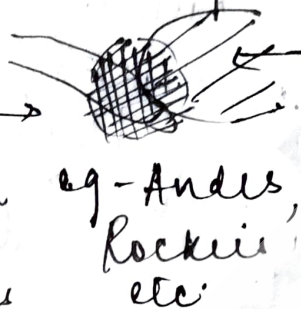 eg - Andes,
Rockies
etc.